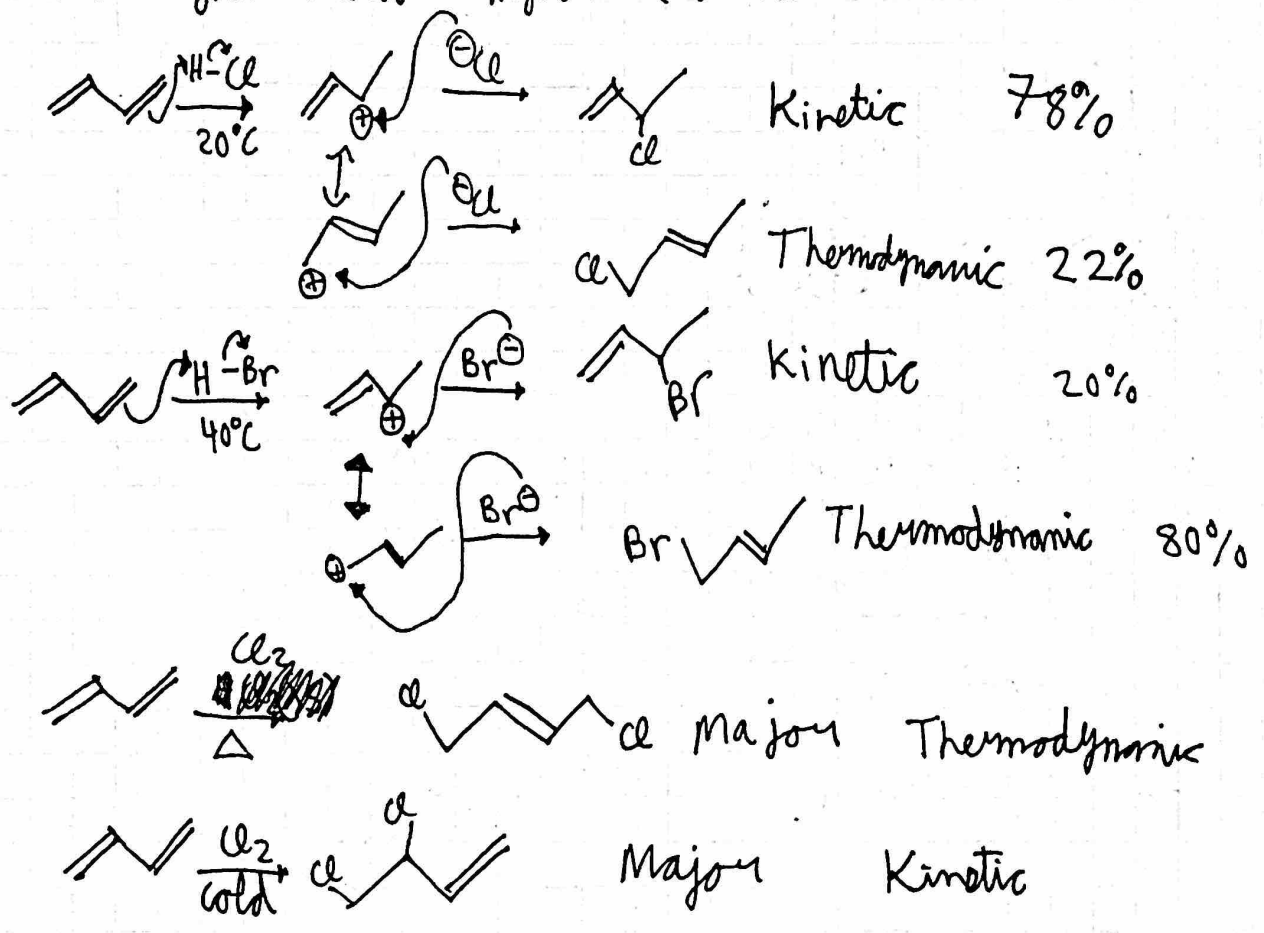 H-Cl ⊖Cl
20°C ⊕ Cl Kinetic 78%
⊖Cl
⊕ Cl Thermodynamic 22%
H-Br Br⊖
40°C ⊕ Br Kinetic 20%
Br⊖
⊕ Br Thermodynamic 80%
Cl2
Δ Cl Cl Major Thermodynamic
Cl2 Cl
cold Cl Major Kinetic